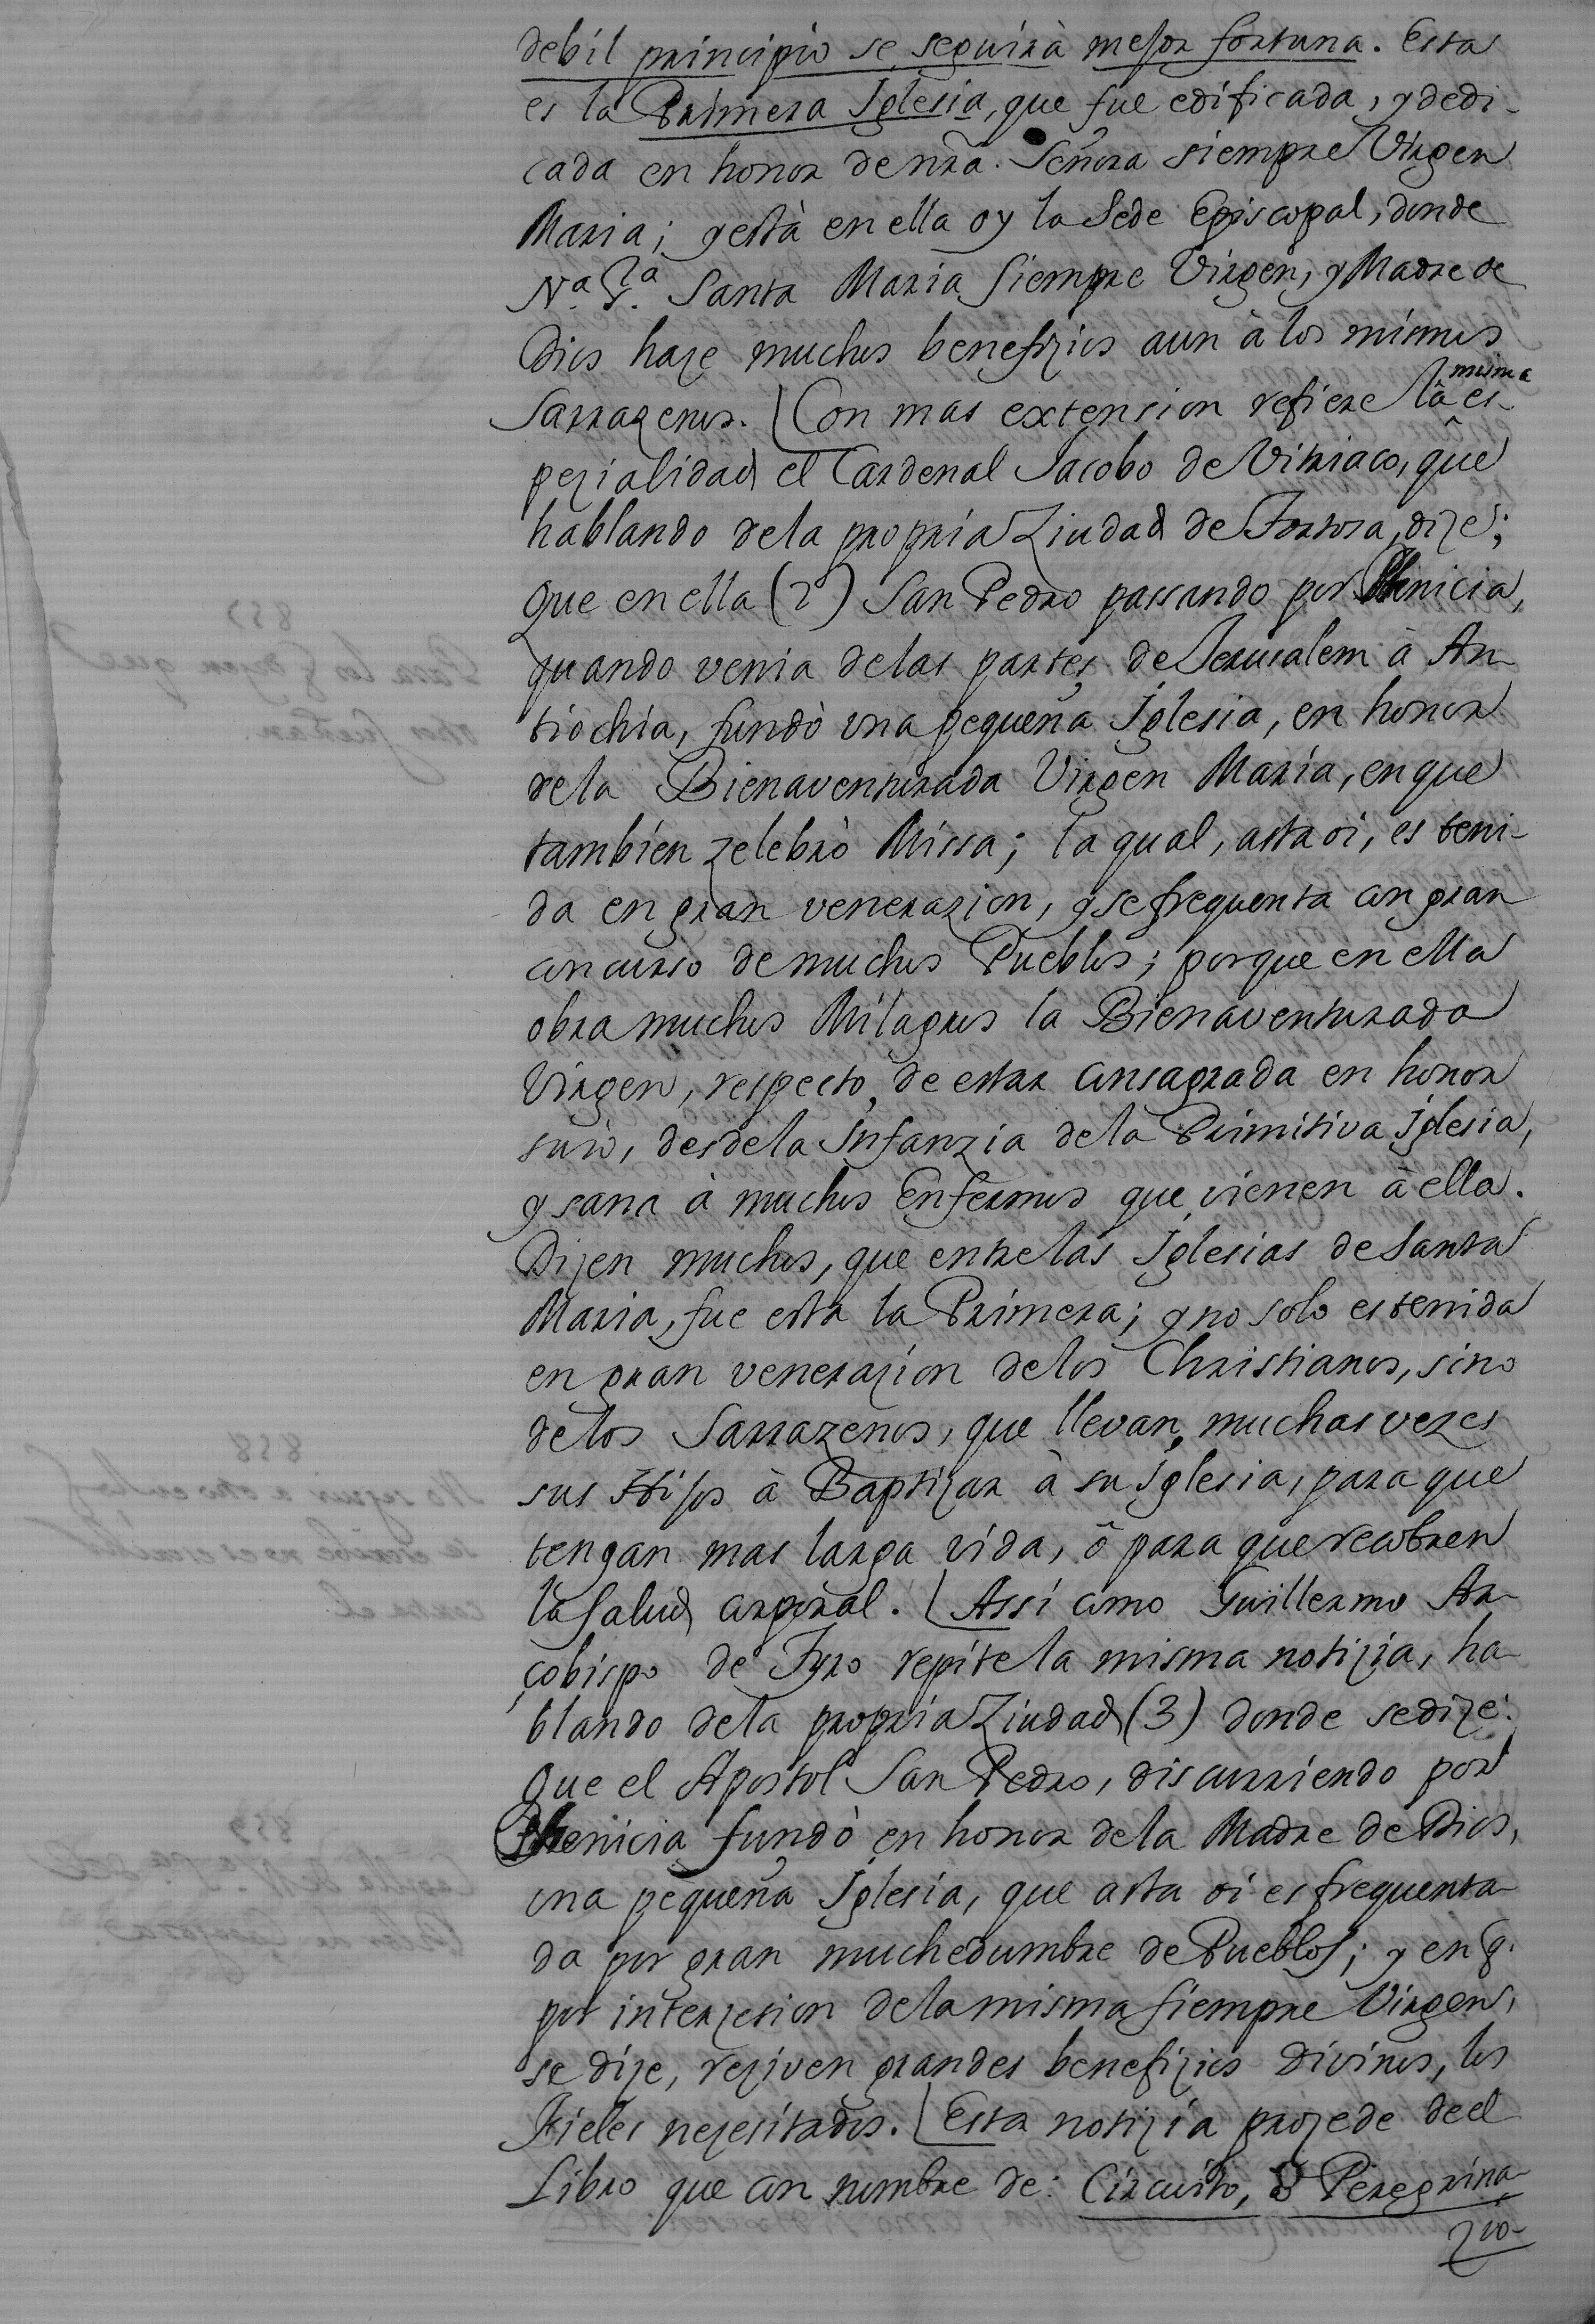 debil principio se seguirà mejor fortuna. Esta
es la Primera Iglesia, que fue edificada, y dedi-
cada en honor de nra. Señora siempre Virgen
Maria; y està en ella oy la Sede Episcopal, donde
Nª. Sª. Santa Maria Siempre Virgen, y Madre de
Dios haze muchos benefizios aun à los mismos
Sarrazenos. Con mas extension refiere la misma es-
pezialidad el Cardenal Jacobo de Vitriaco, que
hablando de la propria Ziudad de Tortosa, dize;
Que en ella (2) San Pedro passando por Phenicia,
quando venia de las partes de Jerusalem à An-
tiochia, fundò una pequeña Iglesia, en honor
de la Bienaventurada Virgen Maria, en que
tambien zelebrò Missa; la qual, asta oi, es teni-
da en gran venerazion, y se frequenta con gran
concurso de muchos Pueblos; porque en ella
obra muchos Milagros la Bienaventurada
Virgen, respecto de estar consagrada en honor
suio, desde la Infanzia de la Primitiva Iglesia,
y sana à muchos Enfermos que vienen à ella.
Dizen muchos, que entre las Iglesias de Santa
Maria, fue esta la Primera; y no solo es tenida
en gran venerazion de los Christianos, sino
de los Sarrazenos, que llevan muchas vezes
sus Hijos à Baptizar à su Iglesia, para que
tengan mas larga vida, ô para que recobren
la Salud corporal. Assi como Guillermo Ar-
çobispo de Tyro repite la misma notizia, ha-
blando de la propria Ziudad (3) donde se dize:
Que el Apostol San Pedro, discurriendo por
Phenicia fundò en honor de la Madre de Dios,
una pequeña Iglesia, que asta oi es frequenta-
da por gran muchedumbre de Pueblos; y en q.
por interzesion de la misma siempre Virgen,
se dize, reziven grandes benefizios Divinos, los
Fieles nezesitados. Esta notizia prozede de el
Libro que con nombre de: Circuito, ò Peregrina-
zio-